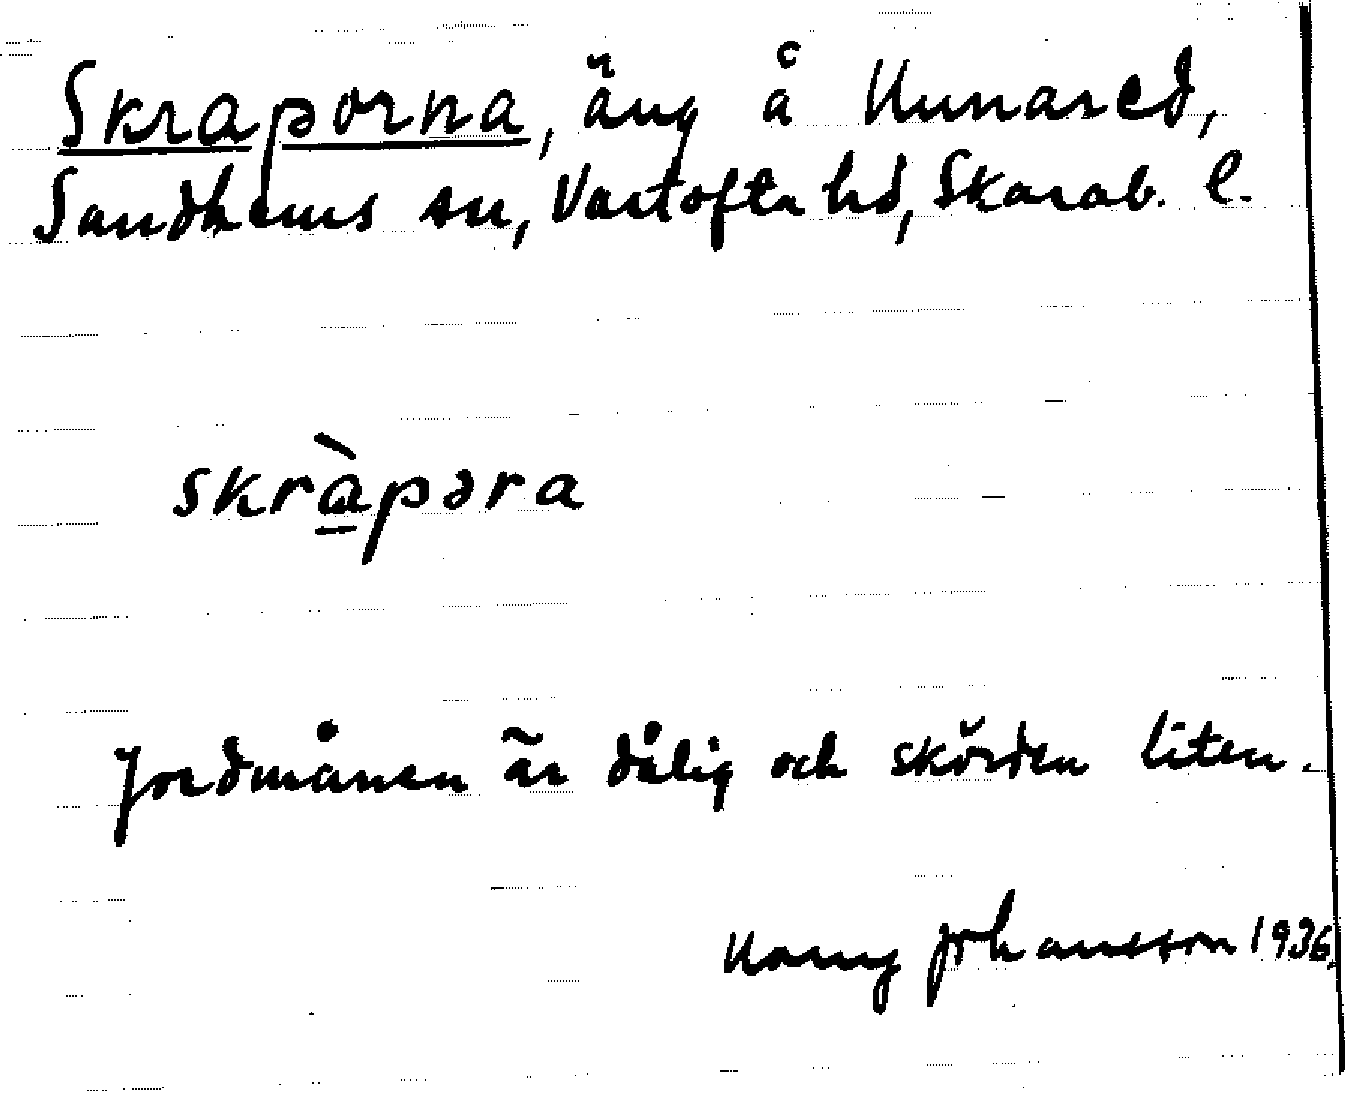 Skraporna, äng å Kunared,
Sandhems sn, Vartofta hd, Skarab. l.
skràpəra
Jordmånen är dålig och skörden liten.
Johansson 1936.